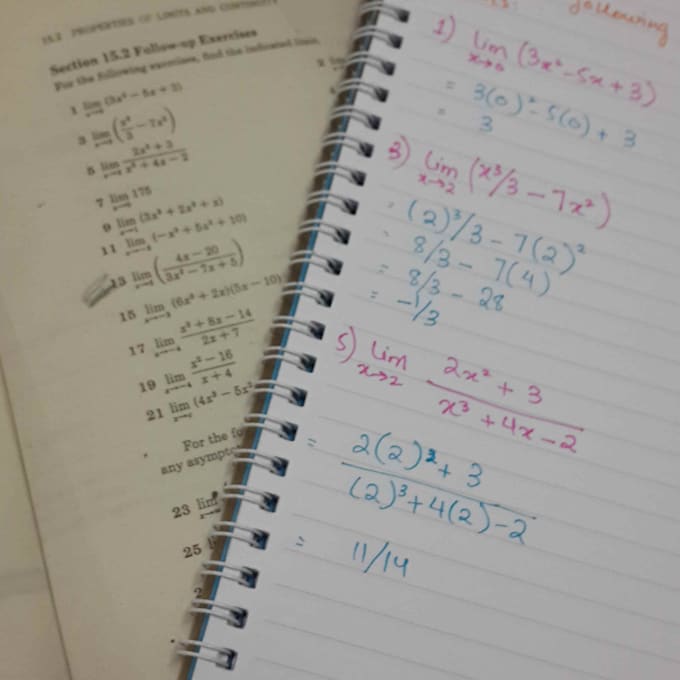 15.2 PROPERTIES OF LIMITS AND CONTINUITY
Section 15.2 Follow-up Exercises
For the following exercises, find the indicated limit.
1 lim (3x² − 5x + 3)
3 lim (x³/3 − 7x²)
5 lim 2x² + 3 / x³ + 4x − 2
7 lim 175
9 lim (3x³ + 2x² + x)
11 lim (−x³ + 5x² + 10)
13 lim (4x − 20 / 3x² − 7x + 5)
15 lim (6x² + 2x)(5x − 10)
17 lim x² + 8x − 14 / 2x + 7
19 lim x² − 16 / x + 4
21 lim (4x³ − 5x²
For the fo
any asympto
23 lim
25
following
1) lim x→0 (3x² − 5x + 3)
= 3(0)² − 5(0) + 3
= 3
3) lim x→2 (x³/3 − 7x²)
= (2)³/3 − 7(2)²
= 8/3 − 7(4)
= 8/3 − 28
= −1/3
5) lim x→2 2x² + 3 / x³ + 4x − 2
= 2(2)² + 3 / (2)³ + 4(2) − 2
= 11/14